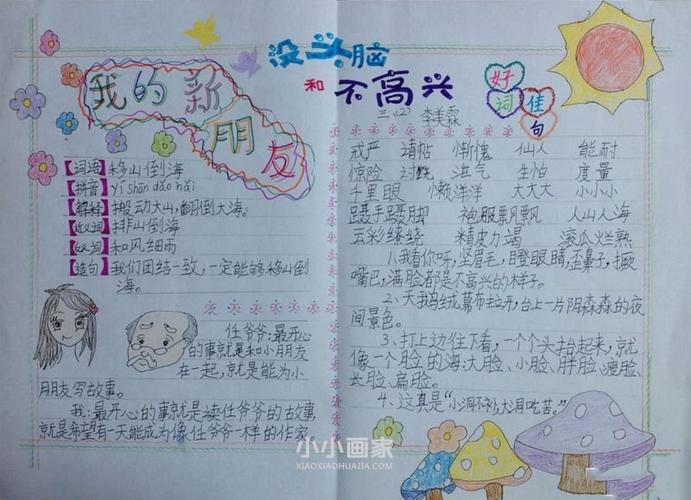 没头脑
和 不高兴
三、(2) 李美霖
我的新朋友
【词语】移山倒海
【拼音】yí shān dǎo hǎi
【解释】搬动大山,翻倒大海。
【近义词】排山倒海
【反义词】和风细雨
【造句】我们团结一致,一定能够移山倒
海。
任爷爷:最开心
的事就是和小朋友
在一起,就是能为小
朋友写故事。
我:最开心的事就是读任爷爷的故事,
就是希望有一天能成为像任爷爷一样的作家
好词佳句
戒严 请帖 惭愧 仙人 能耐
惊险 讨 泄气 生怕 度量
千里眼 懒洋洋 大大大 小小小
蹑手蹑脚 袍服飘飘 人山人海
云彩缭绕 精疲力竭 滚瓜烂熟
1、我看你呀,竖眉毛,瞪眼睛,歪鼻子,撅
嘴巴,满脸都是不高兴的样子。
2、天鹅绒幕布拉开,台上一片阴森森的夜
间景色。
3、打上边往下看,一个个头抬起来,就
像一个脸的海:大脸、小脸、胖脸、瘦脸、
长脸、扁脸。
4、这真是“小洞不补,大洞吃苦。”
小小画家
XIAOXIAOHUAJIA.COM